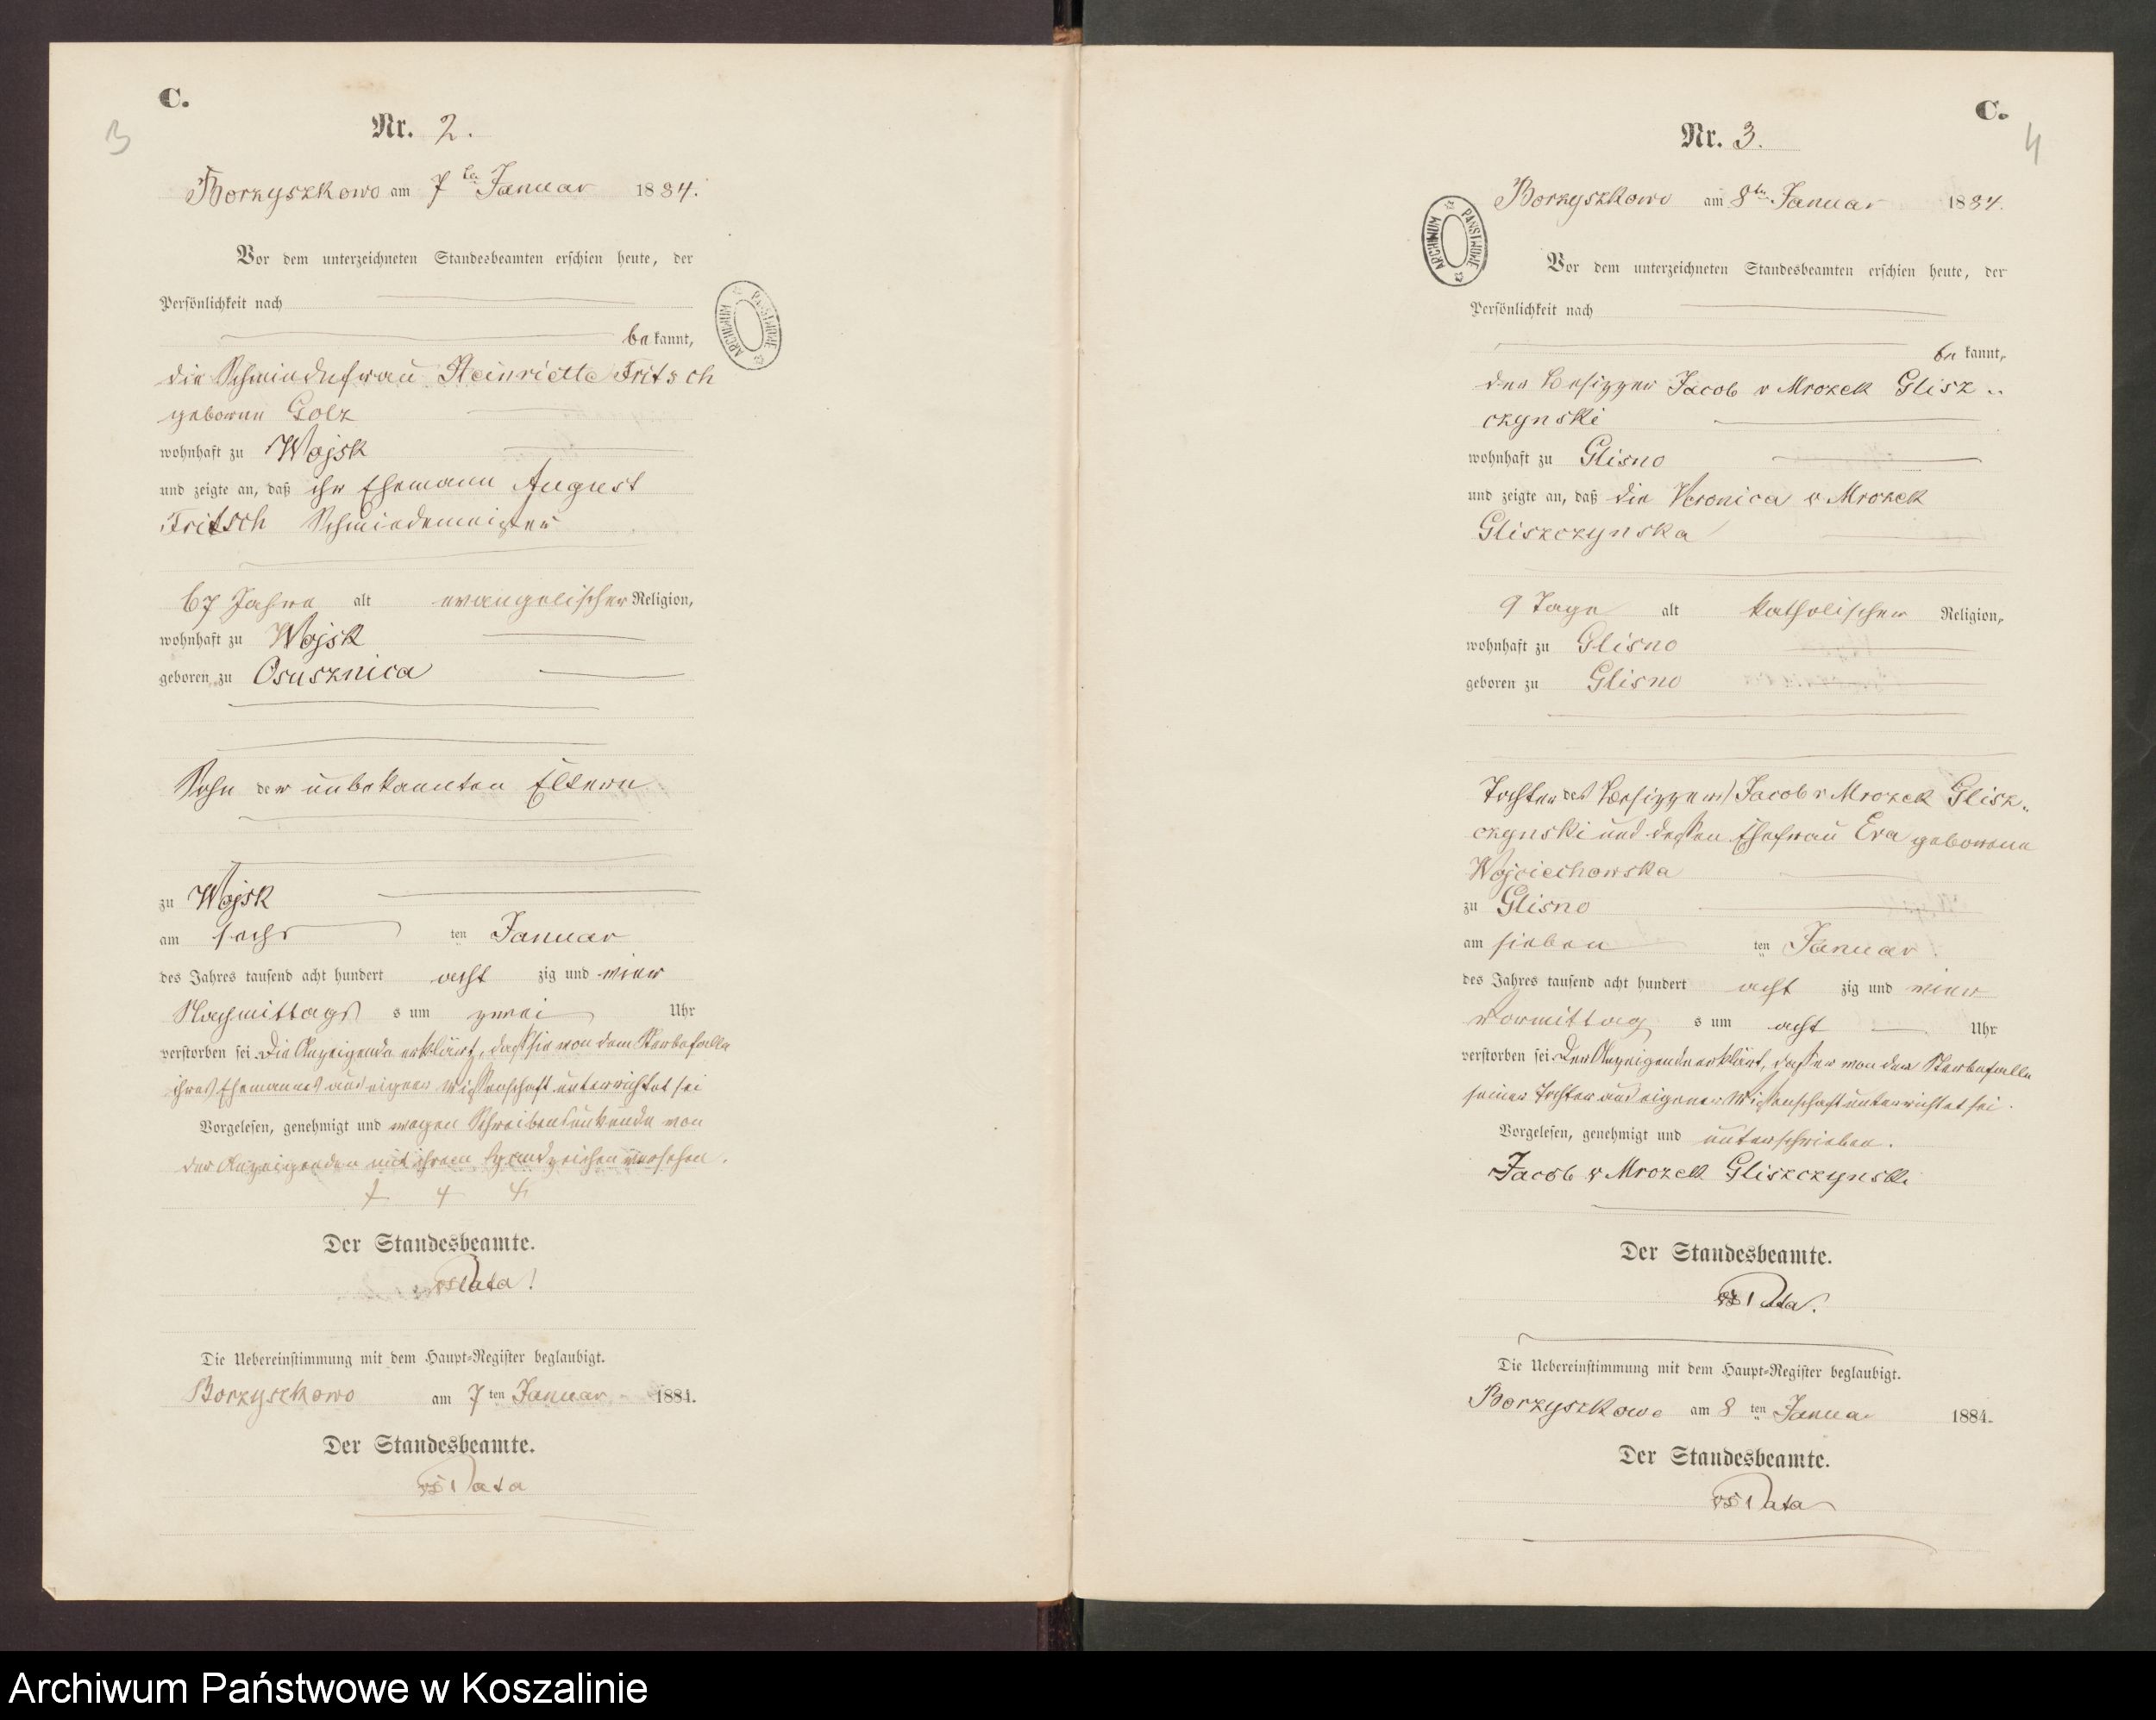 C.
3
Nr. 2.
Borzyszkowo am 7ten Januar 1884.
Vor dem unterzeichneten Standesbeamten erschien heute, der
Persönlichkeit nach
bekannt,
die Schmiedefrau Heinriette Fritsch
geborne Golz
wohnhaft zu Wojsk
und zeigte an, daß ihr Ehemann August
Fritsch Schmiedemeister
67 Jahre alt evangelischer Religion,
wohnhaft zu Wojsk
geboren zu Osusznica
Sohn der unbekannten Eltern
zu Wojsk
am sechsten Januar
des Jahres tausend acht hundert achtzig und vier
Nachmittags um zwei Uhr
verstorben sei. Die Anzeigende erklärt, daß sie von dem Sterbefalle
ihres Ehemannes aus eigener Wissenschaft unterrichtet sei
Vorgelesen, genehmigt und wegen Schreibensunkunde von
der Anzeigenden mit ihrem Handzeichen versehen.
+ + +
Der Standesbeamte.
Data
Die Uebereinstimmung mit dem Haupt-Register beglaubigt.
Borzyszkowo am 7ten Januar 1884.
Der Standesbeamte.
Data
ARCHIWUM PAŃSTWOWE
C.
4
Nr. 3.
Borzyszkowo am 8ten Januar 1884.
Vor dem unterzeichneten Standesbeamten erschien heute, der
Persönlichkeit nach
bekannt,
der Besitzer Jacob v Mrozek Glisz-
czynski
wohnhaft zu Glisno
und zeigte an, daß die Veronica v Mrozek
Gliszczynska
9 Tage alt katholischer Religion,
wohnhaft zu Glisno
geboren zu Glisno
Tochter des Besitzers Jacob v Mrozek Glisz-
czynski und dessen Ehefrau Eva geborene
Wojciechowska
zu Glisno
am siebenten Januar
des Jahres tausend acht hundert achtzig und vier
Vormittags um acht Uhr
verstorben sei. Der Anzeigende erklärt, daß er von dem Sterbefalle
seiner Tochter aus eigener Wissenschaft unterrichtet sei.
Vorgelesen, genehmigt und unterschrieben.
Jacob v Mrozek Gliszczynski
Der Standesbeamte.
Data.
Die Uebereinstimmung mit dem Haupt-Register beglaubigt.
Borzyszkowo am 8ten Januar 1884.
Der Standesbeamte.
Data
ARCHIWUM PAŃSTWOWE
Archiwum Państwowe w Koszalinie